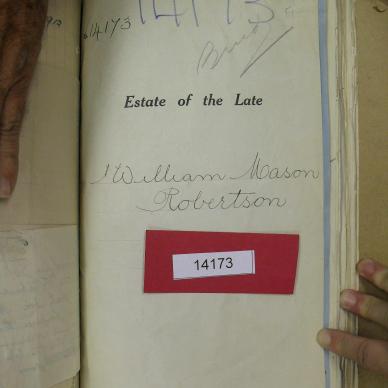 14173
14173
Estate of the Late
William Mason
Robertson
14173